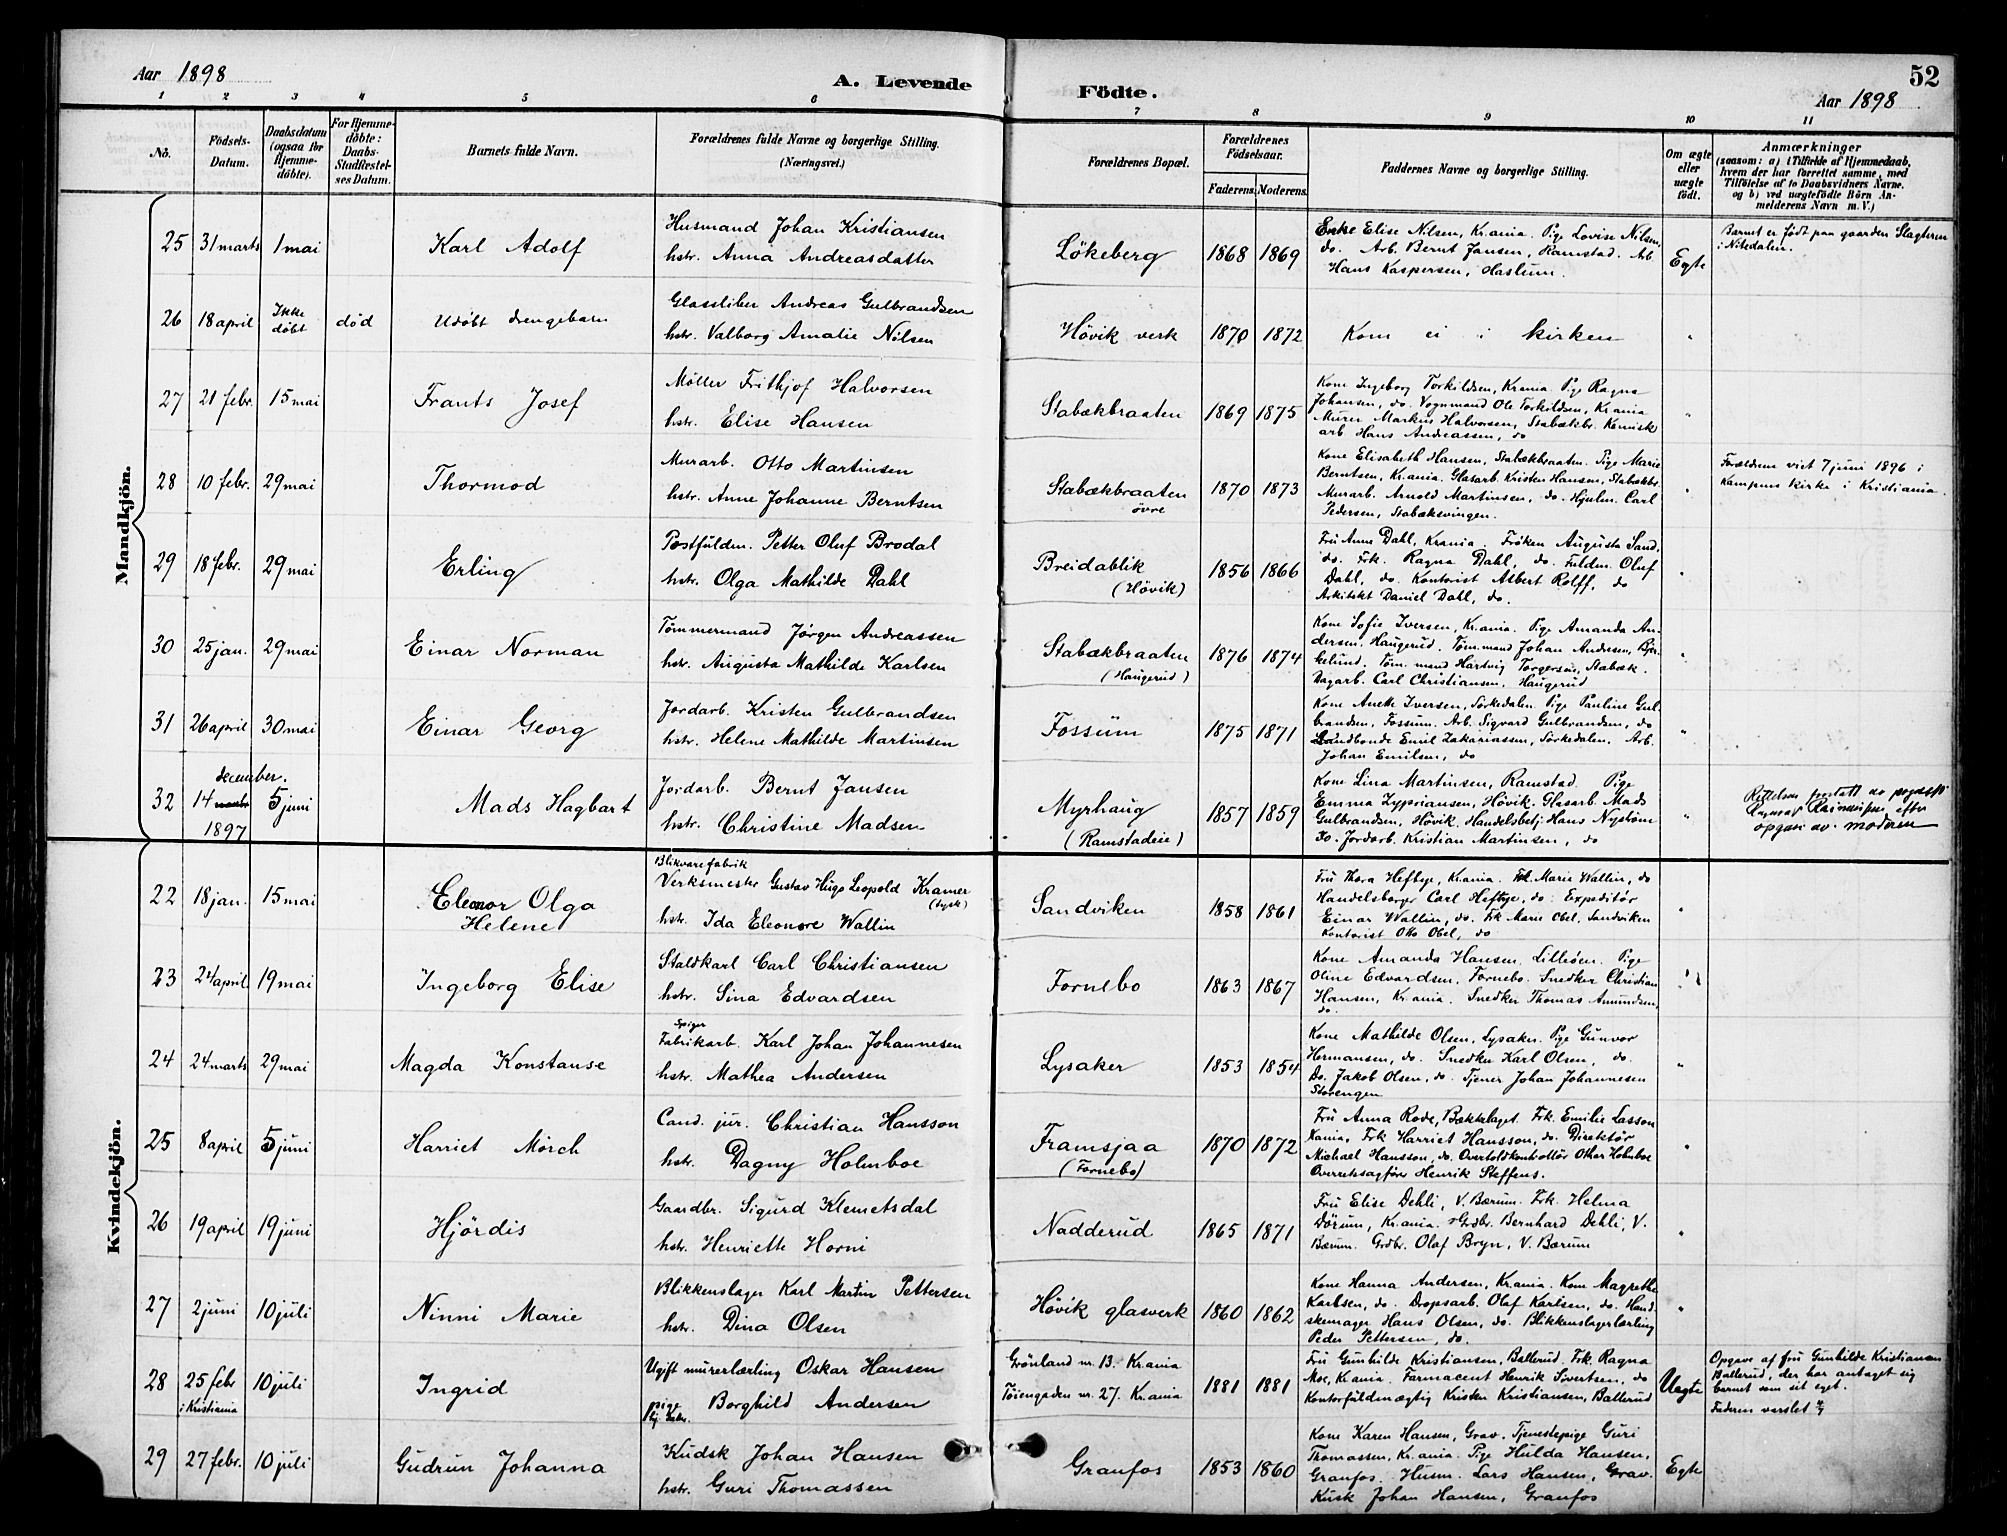 Aar 1898
A. Levende Födte.
52
Aar 1898
1 2 3 4 5 6 7 8 9 10 11
No.
Födsels-Datum.
Daabsdatum (ogsaa for Hjemme-döbte).
For Hjemme-döbte: Daabs-Stadfæstel-ses Datum.
Barnets fulde Navn.
Forældrenes fulde Navne og borgerlige Stilling. (Næringsvei.)
Forældrenes Bopæl.
Forældrenes Födselsaar.
Faderens. Moderens.
Faddernes Navne og borgerlige Stilling.
Om ægte eller uægte födt.
Anmærkninger
(saasom: a) i Tilfælde af Hjemmedaab,
hvem der har forrettet samme, med
Tilföielse af to Daabsvidners Navne.
og b) ved uægtefödte Börn An-
melderens Navn m. V.)
Mandkjön.
25 31 marts 1 mai Karl Adolf
Husmand Johan Kristiansen
hstr. Anna Andreasdatter
Lökeberg 1868 1869
Enke Elise Nilsen, Kr.ania. Pige Lovise Nilsen,
do. Arb. Bernt Jansen, Ramstad. Arb
Hans Kaspersen, Haslum.
Egte
Barnet er födt paa gaarden Slagteren
i Nitedalen.
26 18 april Ikke döbt död Udöbt drengebarn
Glassliber Andreas Gulbrandsen
hstr. Valborg Amalie Nilsen
Hövik verk 1870 1872
Kom ei i kirken
"
27 21 febr. 15 mai Frants Josef
Möller Frithjof Halvorsen
hstr. Elise Hansen
Stabækbraaten 1869 1875
Kone Ingeborg Torkildsen, Kr.ania. Pige Ragna
Johansen, do. Vognmand Ole Torkildsen, Kr.ania
Murer Markus Halvorsen, Stabækbr. Kemisk
arb. Hans Andreassen, do
"
28 10 febr. 29 mai Thormod
Murarb. Otto Martinsen
hstr. Anne Johanne Berntsen
Stabækbraaten övre 1870 1873
Kone Elisabeth Hansen, Stabækbraaten. Pige Marie
Berntsen, Kr.ania. Glasarb. Kristen Hansen, Stabækbr.
Murarb. Arnold Martinsen, do. Hjulm. Carl
Pedersen, Stabæksvingen.
"
Forældrene viet 7 juni 1896 i
Kampens kirke i Kristiania.
29 18 febr. 29 mai Erling
Postfuldm. Petter Oluf Brodal
hstr. Olga Mathilde Dahl
Breidablik (Hövik) 1856 1866
Fru Anna Dahl, Kr.ania. Fröken Augusta Sand,
do. Frk. Ragna Dahl, do. Fuldm. Oluf
Dahl, do. Kontorist Albert Rolff, do
Arkitekt Daniel Dahl, do.
"
30 25 jan. 29 mai Einar Norman
Tömmermand Jörgen Andreassen
hstr. Augusta Mathilde Karlsen
Stabækbraaten (Haugerud) 1876 1874
Kone Sofie Iversen, Kr.ania. Pige Amanda An-
dersen, Haugerud. Töm.mand Johan Andersen, Bjer-
kelund. Töm.mand Hartvig Torgersen, Stabæk.
Dagarb. Carl Christiansen, Haugerud
"
31 26 april 30 mai Einar Georg
Jordarb. Kristen Gulbrandsen
hstr. Helene Mathilde Martinsen
Fossum 1875 1871
Kone Anette Iversen, Sörkedalen. Pige Pauline Gul-
brandsen, Fossum. Arb. Sigvard Gulbrandsen, do
Landbonde Emil Zakariassen, Sörkedalen. Arb.
Johan Emilsen, do
"
32 14 december. 1897 5 juni Mads Hagbart
Jordarb. Bernt Jansen
hstr. Christine Madsen
Myrhaug (Ramstadeie) 1857 1859
Kone Lina Martinsen, Ramstad. Pige
Emma Zypriansen, Hövik. Glasarb. Mads
Gulbrandsen, Hövik. Handelsbetj. Hans Nyström
do. Jordarb. Kristian Martinsen, do
"
Rettelsen foretatt av
efter
opgave av moderen
Kvindekjön.
22 18 jan. 15 mai Eleonor Olga Helene
Blikvarefabrik
Verksmester Gustav Hugo Leopold Kramer (tysk)
hstr. Ida Eleonore Wallin
Sandviken 1858 1861
Fru Thora Heftye, Kr.ania. Frk. Marie Wallin, do
Handelsborger Carl Heftye, do. Expeditör
Einar Wallin, do. Frk Marie Obel, Sandviken
Kontorist Otto Obel, do
"
23 24 april 19 mai Ingeborg Elise
Staldkarl Carl Christiansen
hstr. Sina Edvardsen
Fornebo 1863 1867
Kone Amanda Hansen, Lilleöen. Pige
Oline Edvardsen, Fornebo. Snedker Christian
Hansen, Kr.ania. Snedker Thomas Amundsen,
do.
"
24 24 marts 29 mai Magda Konstanse
Spiger
Fabrikarb. Karl Johan Johannesen
hstr. Mathea Andersen
Lysaker 1853 1854
Kone Mathilde Olsen, Lysaker. Pige Gunvor
Hermansen, do. Snedker Karl Olsen, do.
Do. Jakob Olsen, do. Tjener Johan Johannesen
Storengen
"
25 8 april 5 juni Harriet Mörch
Cand. jur. Christian Hansson
hstr. Dagny Holmboe
Framsjaa (Fornebo) 1870 1872
Fru Anna Rode, Bækkelaget. Frk. Emilie Lasson
Kania, Frk Harriet Hansson, do. Direktör
Michael Hansson, do. Overtoldkontrollör Othar Holmboe
Overretssagförer Henrik Steffens.
"
26 19 april 19 juni Hjördis
Gaardbr. Sigurd Klemetsdal
hstr. Henriette Horni
Nadderud 1865 1871
Fru Elise Dehli, V. Bærum. Frk. Helma
Dörum, Kr.ania. Grdbr. Bernhard Dehli, V.
Bærum. Grdbr. Olaf Bryn, V. Bærum
"
27 2 juni 10 juli Ninni Marie
Blikkenslager Karl Martin Pettersen
hstr. Dina Olsen
Hövik glasverk 1860 1862
Kone Hanna Andersen, Kr.ania. Kone Magrethe
Karlsen, do. Dropsarb. Olaf Karlsen, do. Hand-
skemager Hans Olsen, do. Blikkenslagerlærling
Peder Pettersen, do.
"
28 25 febr i Kristiania 10 juli Ingrid
Ugift murerlærling Oskar Hansen
pige Borghild Andersen
Grönland nr. 13. Kr.ania
Töiengaden nr. 27. Kr.ania
1881 1881
Fru Gunhilde Kristiansen, Ballerud. Frk. Ragna
Moe, Kr.ania. Farmaceut Henrik Sivertsen, do
Kontorfuldmægtig Kristen Kristiansen, Ballerud
Uegte
Opgave af fru Gunhilde Kristiansen
Ballerud, der har antaget sig
barnet som sit eget.
Faderen varslet
29 27 febr. 10 juli Gudrun Johanna
Kudsk Johan Hansen
hstr. Guri Thomassen
Granfos 1853 1860
Kone Karen Hansen, Grav. Tjenestepige Guri
Thomassen, Kr.ania. Pige Hulda Hansen,
Granfos. Husm. Lars Hansen, Grav.
Kusk Johan Hansen, Granfos
Egte